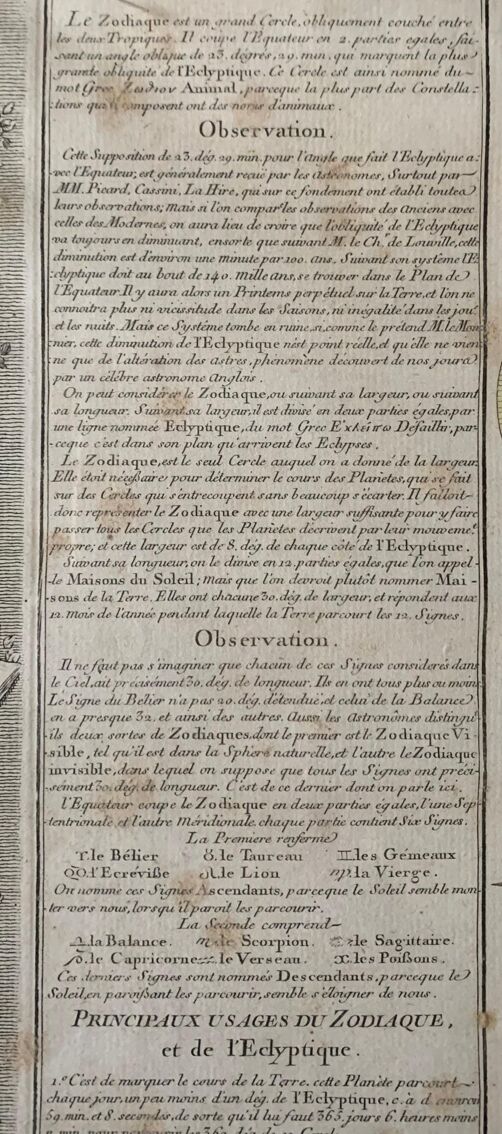 Le Zodiaque est un grand Cercle, obliquement couché entre
les deux Tropiques. Il coupe l'Equateur en 2. parties egales, fai-
sant un angle oblique de 23. dégrés, 29. min. qui marquent la plus
grande obliquité de l'Eclyptique. Ce Cercle est ainsi nommé du
mot Grec Zωdιον Animal, parceque la plus part des Constella
:tions qui le composent ont des noms d'animaux.
Observation.
Cette Supposition de 23. dég. 29. min. pour l'angle que fait l'Eclyptique a:
vec l'Equateur, est généralement reçue par les Astronomes, Surtout par
MM. Picard, Cassini, La Hire, qui sur ce fondement ont établi toutes
leurs observations; mais si l'on compar les observations des Anciens avec
celles des Modernes, on aura lieu de croire que l'obliquité de l'Eclyptique
va toujours en diminuant, ensorte que suivant M. le Ch. de Louville, cette
diminution est d'environ une minute par 100. ans. Suivant son systême l'E
:clyptique doit au bout de 140. mille ans, se trouver dans le Plan de
l'Equateur. Il y aura alors un Printems perpétuel sur la Terre, et l'on ne
connoitra plus ni vicissitude dans les Saisons, ni inégalité dans les jou.
et les nuits. Mais ce Systême tombe en ruine, si, comme le prétend M. le Mon
nier, cette diminution de l'Eclyptique n'est point réelle, et qu'elle ne vien
ne que de l'altération des astres, phénomène découvert de nos jours
par un célèbre astronome Anglois.
On peut considérer le Zodiaque, ou suivant sa largeur, ou suivant
sa longueur. Suivant sa largeur, il est divisé en deux parties égales, par
une ligne nommée Eclyptique, du mot Grec Εχλειπω Défaillir, par-
ceque c'est dans son plan qu'arrivent les Eclypses.
Le Zodiaque, est le seul Cercle auquel on a donné de la largeur.
Elle étoit nécéssaire pour déterminer le cours des Planètes, qui se fait
sur des Cercles qui s'entrecoupent sans beaucoup s'écarter. Il falloit
donc représenter le Zodiaque avec une largeur suffisante pour y faire
passer tous les Cercles que les Planètes décrivent par leur mouveme.t
propre; et cette largeur est de 8. dég. de chaque côté de l'Eclyptique.
Suivant sa longueur, on le divise en 12. parties égales, que l'on appel-
-le Maisons du Soleil; mais que l'on devroit plutôt nommer Mai-
sons de la Terre. Elles ont chacune 30. dég. de largeur, et répondent aux
12. mois de l'année pendant laquelle la Terre parcourt les 12. Signes.
Observation.
Il ne faut pas s'imaginer que chacun de ces Signes considerés dans
le Ciel, ait précisément 30. dég. de longueur. Ils en ont tous plus ou moins
Le Signe du Bélier n'a pas 20. dég. d'étendüe, et celui de la Balance
en a presque 32. et ainsi des autres. Aussi les Astronômes distingu-
ils deux sortes de Zodiaques, dont le premier est le Zodiaque Vi
sible, tel qu'il est dans la Sphere naturelle, et l'autre le Zodiaque
invisible, dans lequel on suppose que tous les Signes ont préci-
sément 30. dég. de longueur. C'est de ce dernier dont on parle ici.
l'Equateur coupe le Zodiaque en deux parties égales, l'une Sep-
tentrionale et l'autre Méridionale, chaque partie contient Six Signes.
La Premiere renferme
♈.le Bélier ♉.le Taureau ♊.les Gémeaux
♋.l'Ecréviße ♌.le Lion ♍.la Vierge.
On nomme ces Signes Ascendants, parceque le Soleil semble mon-
ter vers nous, lorsqu'il paroit les parcourir.
La Seconde comprend
♎.la Balance. ♏.le Scorpion. ♐.le Sagittaire.
♑.le Capricorne. ♒.le Verseau. ♓.les Poißons.
Ces derniers Signes sont nommés Descendants, parceque le
Soleil, en paroißant les parcourir, semble s'éloigner de nous.
PRINCIPAUX USAGES DU ZODIAQUE,
et de l'Eclyptique.
1.° C'est de marquer le cours de la Terre. cette Planète parcourt
chaque jour, un peu moins d'un dég. de l'Eclyptique, c. à d. environ
59. min. et 8. secondes, de sorte qu'il lui faut 365. jours 6. heures moins